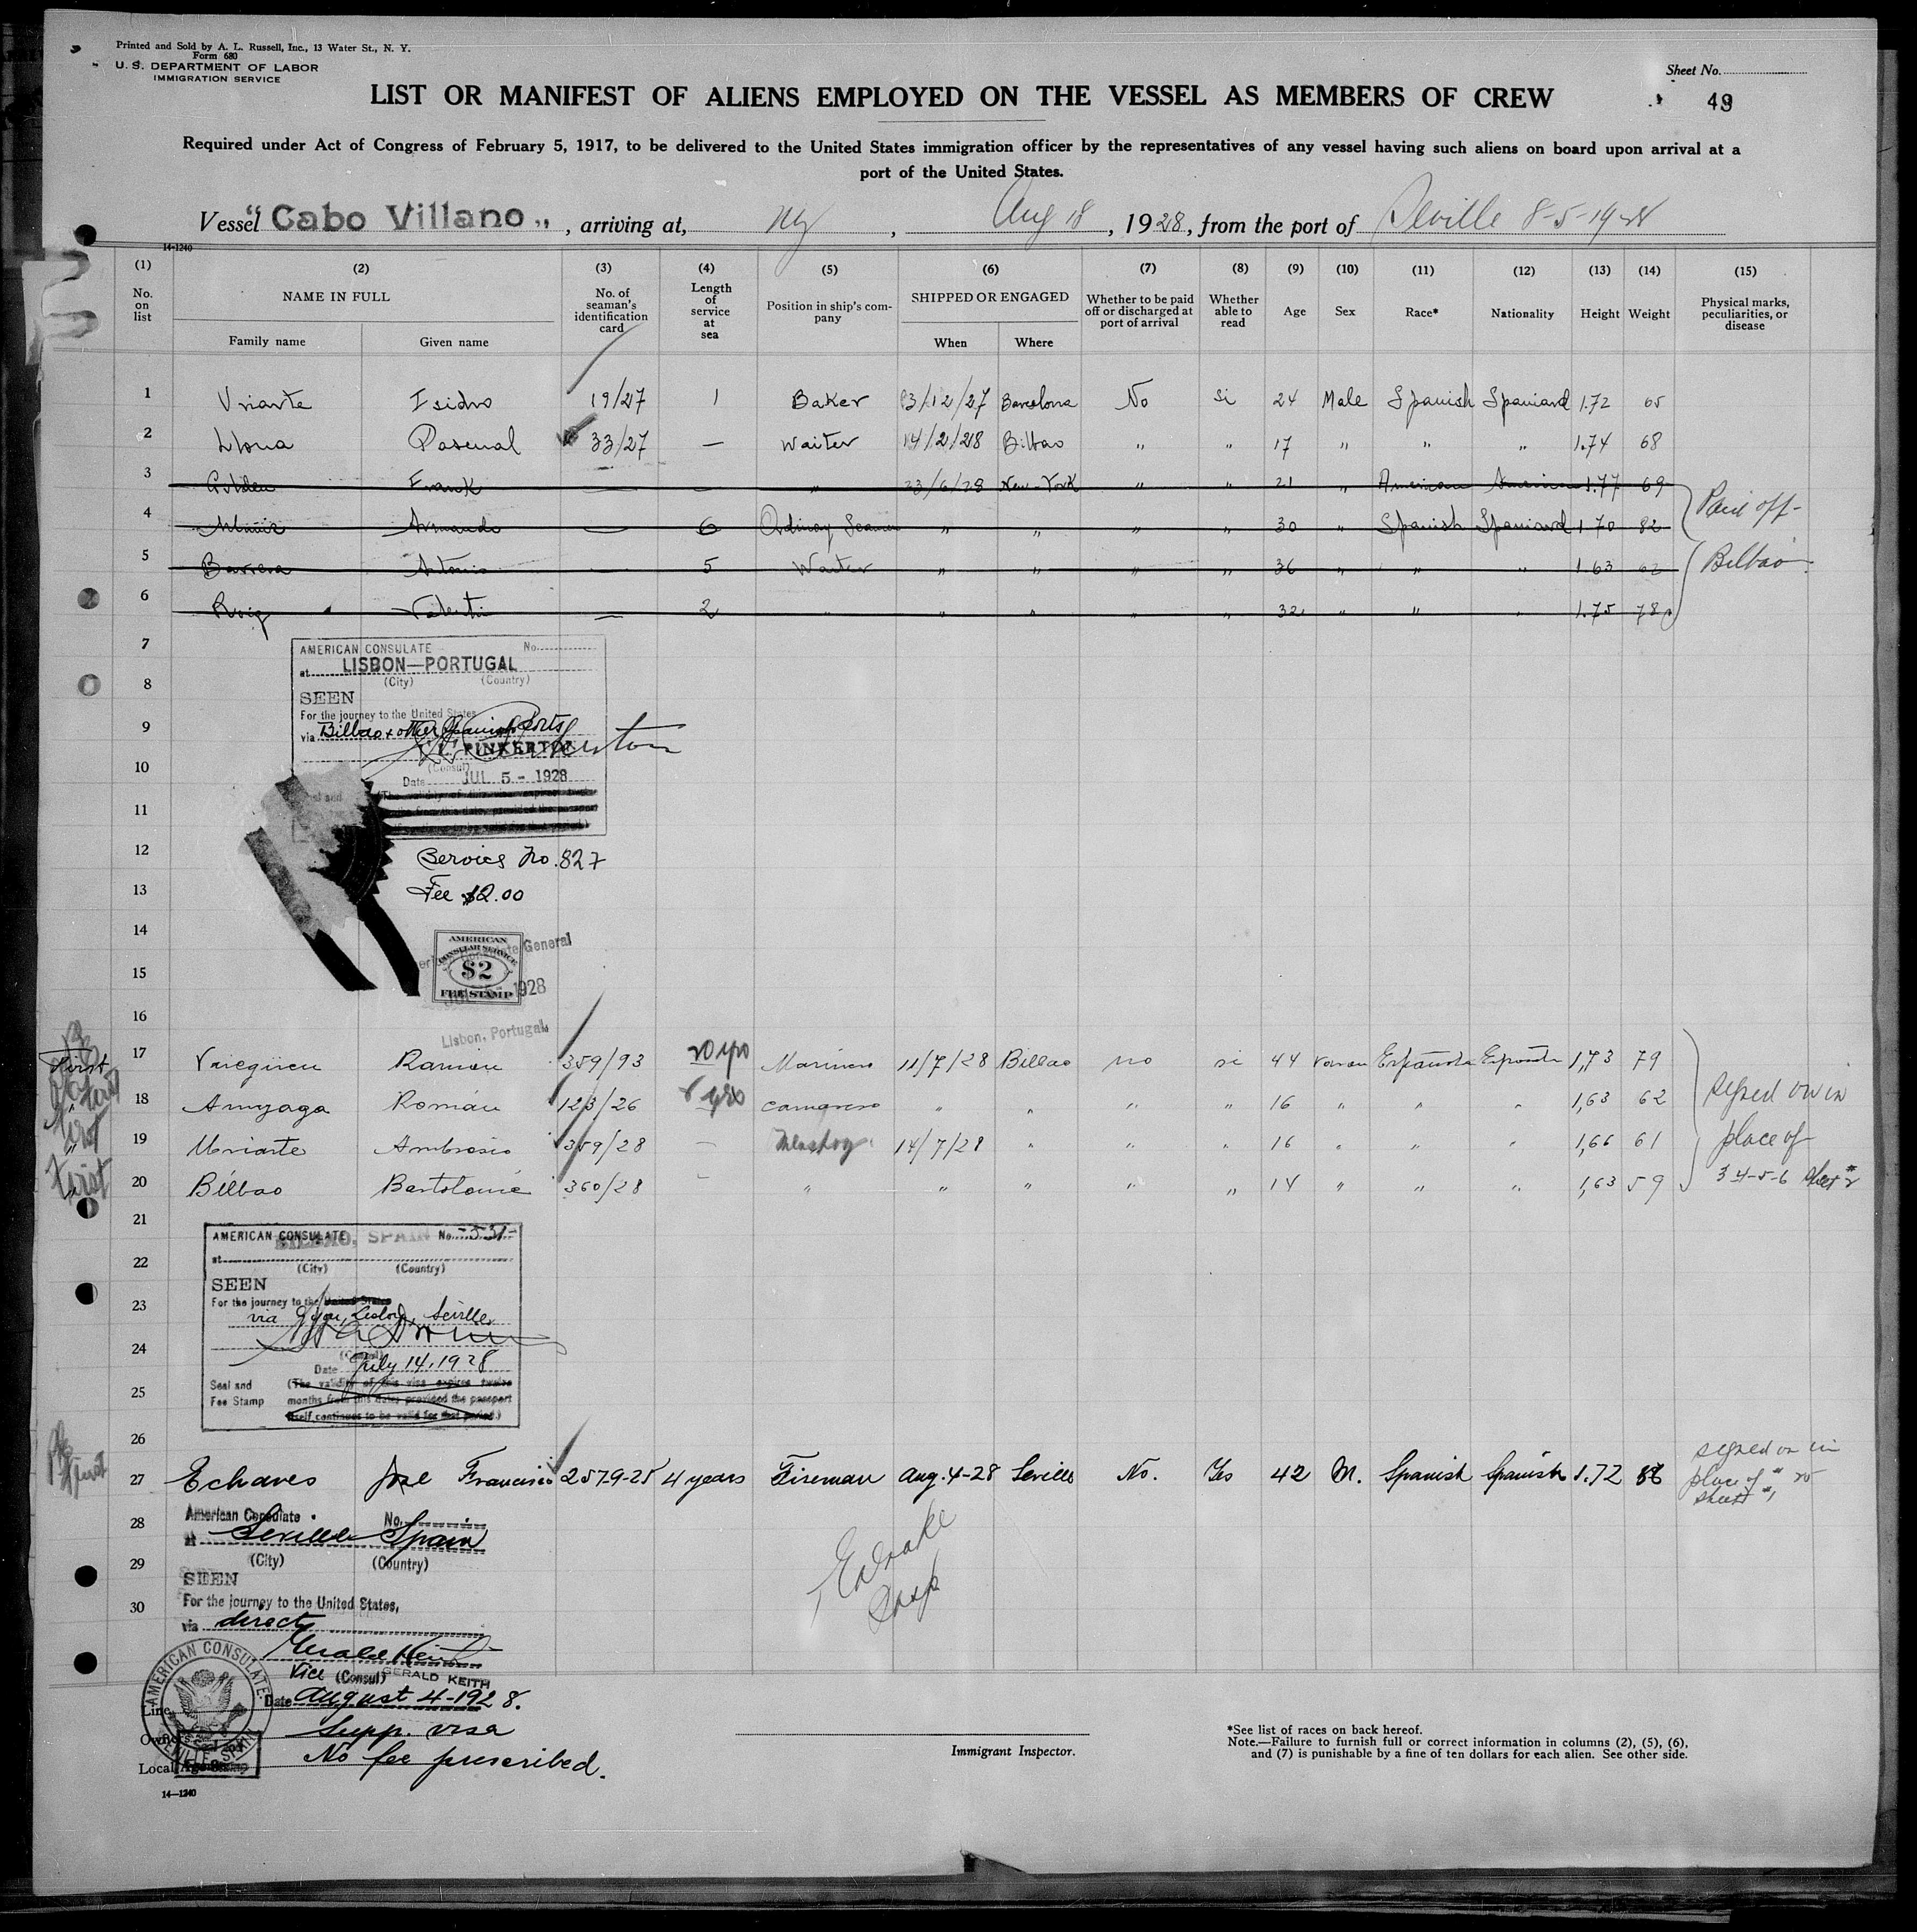 Printed and Sold by A. L. Russell, Inc., 13 Water St., N. Y.
Form 680
U. S. DEPARTMENT OF LABOR
IMMIGRATION SERVICE
Sheet No.
49
LIST OR MANIFEST OF ALIENS EMPLOYED ON THE VESSEL AS MEMBERS OF CREW
Required under Act of Congress of February 5, 1917, to be delivered to the United States immigration officer by the representatives of any vessel having such aliens on board upon arrival at a
port of the United States.
Vessel "Cabo Villano", arriving at, NY, Aug 18, 1928, from the port of Seville 8-5-1928
14-1240
(1) (2) (3) (4) (5) (6) (7) (8) (9) (10) (11) (12) (13) (14) (15)
No. on list
NAME IN FULL
Family name
Given name
No. of seaman's identification card
Length of service at sea
Position in ship's company
SHIPPED OR ENGAGED
When
Where
Whether to be paid off or discharged at port of arrival
Whether able to read
Age
Sex
Race*
Nationality
Height
Weight
Physical marks, peculiarities, or disease
1 Uriarte Isidro 19/27 1 Baker 13/12/27 Barcelona No si 24 Male Spanish Spaniard 1.72 65
2 Llona Pascual 33/27 — Waiter 14/2/28 Bilbao " " 17 " " " 1.74 68
3 Frank — — " 23/6/28 New-York " " 21 " American American 1.77 69
4 Armando — 6 Ordinary Seaman " " " " 30 " Spanish Spaniard 1.70 82
5 Barrera Antonio — 5 Waiter " " " " 36 " " " 1.63 62
6 Roig Valentin — 2 " " " " " 32 " " " 1.75 78
Paid off -
Bilbao.
7
AMERICAN CONSULATE No.
at LISBON—PORTUGAL
(City) (Country)
8
SEEN
For the journey to the United States
9
via Bilbao & other Spanish Ports
PINKERTON
(Consul)
10
Date JUL 5 - 1928
11
12
Service No. 827
13
Fee $2.00
14
AMERICAN
CONSULAR SERVICE
$2
FEE STAMP
General
1928
15
16
Lisbon, Portugal.
First
17 Ramon 359/93 20 yrs Marinero 11/7/28 Bilbao no si 44 Varon Española Española 1,73 79
18 Román 123/26 camarero " " " " 16 " " " 1,63 62
19 Uriarte Ambrosio 359/28 — 14/7/28 " " " 16 " " " 1,66 61
First
20 Bilbao Bartolomé 360/28 — " " " " " 14 " " " 1,63 59
signed on in
place of
3-4-5-6 sheet #2
21
AMERICAN CONSULATE No.
at BILBAO, SPAIN
22
(City) (Country)
SEEN
23
For the journey to the United States
via Seville
24
(Consul)
Date July 14, 1928
25
Seal and Fee Stamp
(The validity of this visa expires twelve
months from this date, provided the passport
itself continues to be valid for that period.)
26
27 Echaves José Francisco 2579-25 4 years Fireman Aug. 4-28 Seville No. Yes 42 M. Spanish Spanish 1.72
signed on in
place of
sheet
28
American Consulate No.
at Seville Spain
29
(City) (Country)
SEEN
30
For the journey to the United States,
via direct
Gerald Keith
Vice (Consul) GERALD KEITH
Date August 4-1928.
Supp. visa
No fee prescribed.
AMERICAN CONSULATE.
SEVILLE SPAIN
Line
Owners
Local Agents
14—1240
Immigrant Inspector.
*See list of races on back hereof.
Note.—Failure to furnish full or correct information in columns (2), (5), (6),
and (7) is punishable by a fine of ten dollars for each alien. See other side.